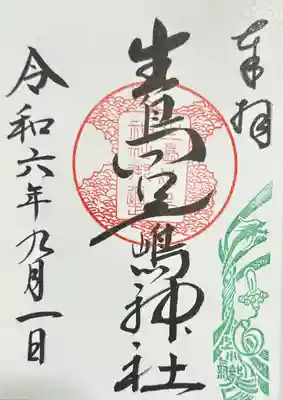 奉拝
生島足嶋神社
令和六年九月一日